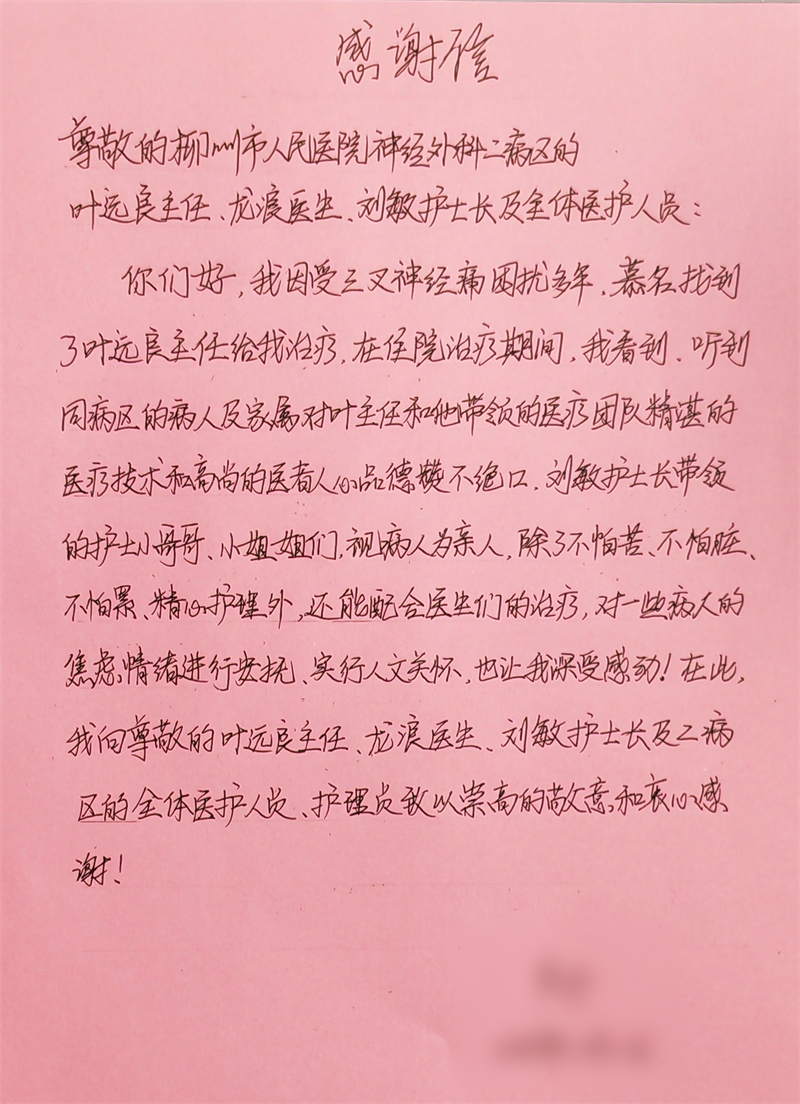 感谢信
尊敬的柳州市人民医院神经外科二病区的
叶远良主任、龙浪医生、刘敏护士长及全体医护人员：
你们好，我因受三叉神经痛困扰多年，慕名找到
了叶远良主任给我治疗，在住院治疗期间，我看到、听到
同病区的病人及家属对叶主任和他带领的医疗团队精湛的
医疗技术和高尚的医者人心品德赞不绝口。刘敏护士长带领
的护士小哥哥、小姐姐们，视病人为亲人，除了不怕苦、不怕脏、
不怕累、精心护理外，还能配合医生们的治疗，对一些病人的
焦虑情绪进行安抚、实行人文关怀，也让我深受感动！在此，
我向尊敬的叶远良主任、龙浪医生、刘敏护士长及二病
区的全体医护人员、护理员致以崇高的敬意和衷心感
谢！